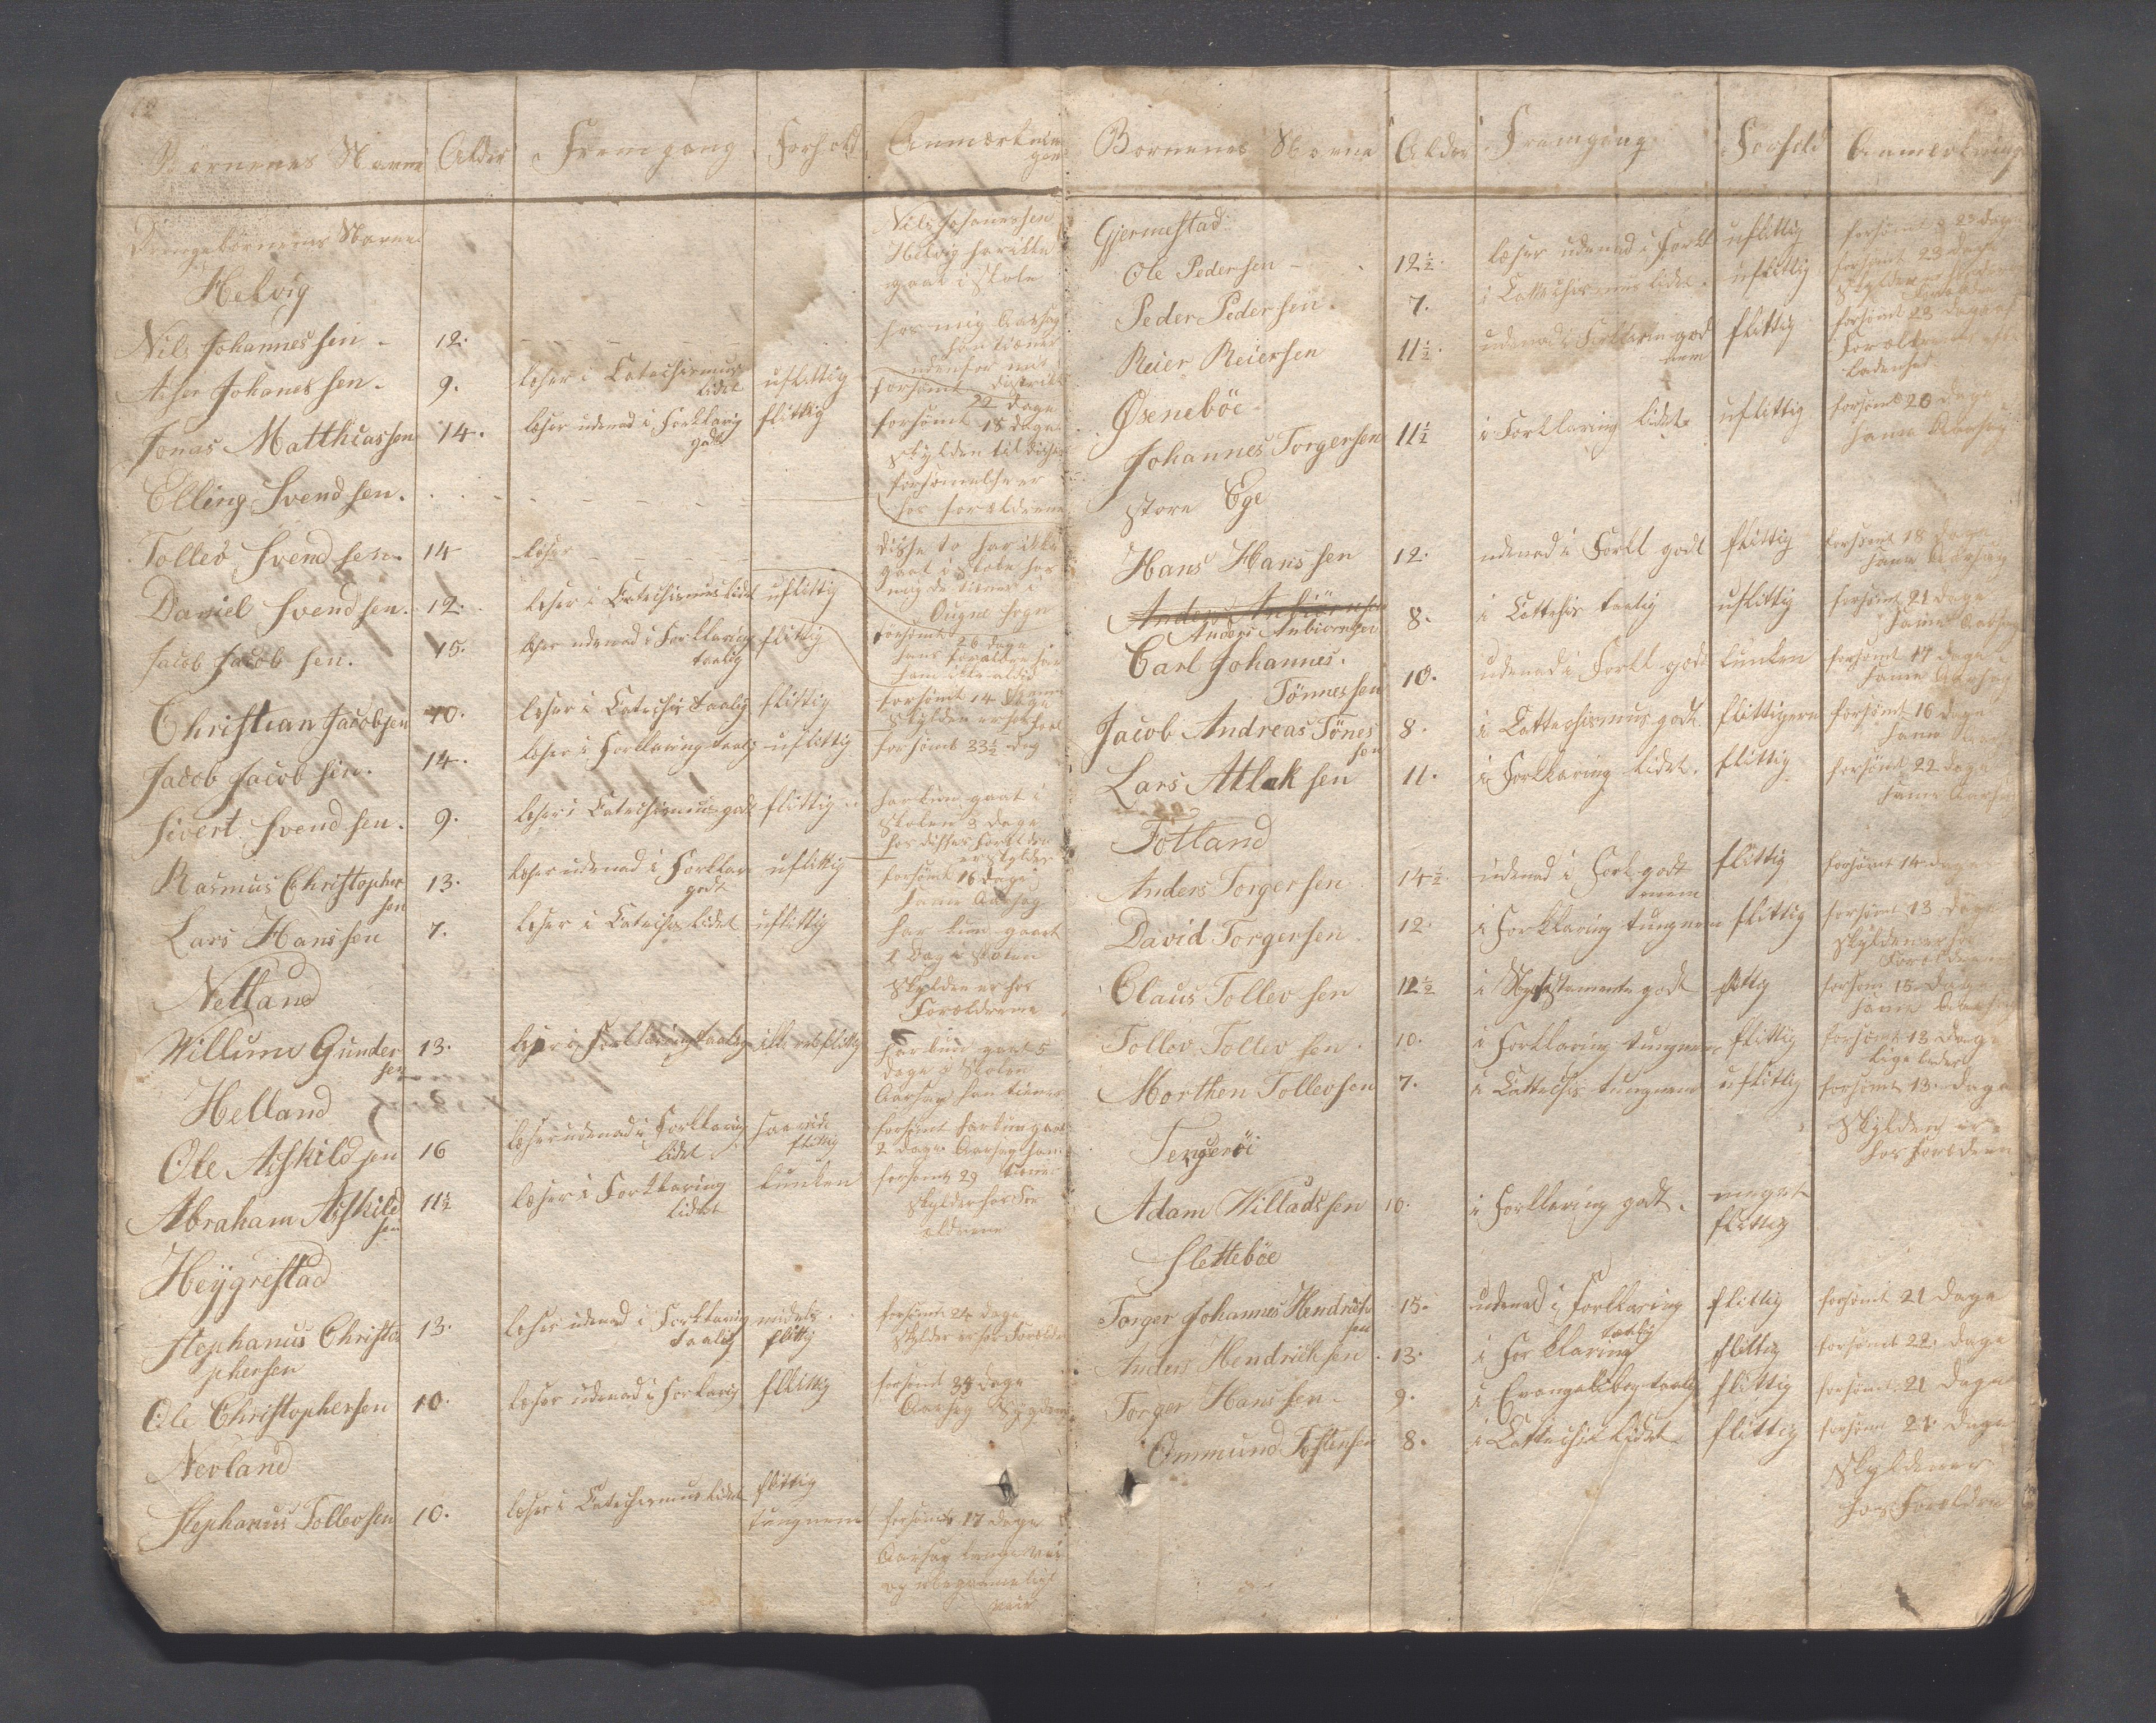 Børnenes Navne Alder Fremgang Forhold Anmærkninger
Drengebørnenes Navne
Helvig
Nils Johannessen 12. Nils Johannessen Helvig har ikke gaat i Skole hos mig Aarsag han tiener udenfor mit Distrikt
Aser Johanessen 9. læser i Catechismus lidet uflittig forsømt 22 Dage
Jonas Matthiassen 14. læser udenad i Forklarig godt flittig forsømt 18 dage skylden til disse forsømmelse er hos forældrene
Elling Svendsen.
Tollev Svendsen. 14 læser disse to har ikke gaat i Skole hos mig de tiener i Ougne Sogn
Daniel Svendsen. 12. læser i Catechismus lidet uflittig
Jacob Jacobsen. 15. læser udenad i Forklaring taalig flittig forsømt 26 dage
Christian Jacobsen 10. læser i Catechis taalig flittig forsømt 14 Dage
Jacob Jacobsen. 14. læser i Forklaring taalig uflittig forsømt 33½ dag
Sivert Svendsen. 9. læser i Catechismus godt flittig har kun gaat i Skolen 3 dage hos disses Forældre er skylden
Rasmus Christophersen 13. læser udenad i Forklar godt uflittig forsømt 16 dage samme Aarsag
Lars Hanssen 7. læser i Catechis lidet uflittig har kun gaaet 1 Dag i Skolen Skylden er hos Forældrene
Netland
Willum Gundersen 13. læser i Forklaring taalig ikke ret flittig har kun gaat 5 dage i Skolen Aarsag han tiener
Helland
Ole Asskildsen 16 læser udenad i Forklaring lidet flittig forsømt har kun gaat 2 dage Aarsag han tiener
Abraham Asskildsen 11½ læser i Forklaring lidet lunken forsømt 29 Skylden hos Forældrene
Heÿgrestad
Stephanus Christophersen 13. læser udenad i Forklaring taalig midels flittig forsømt 24 dage Skylden er hos Forældre
Ole Christophersen 10. læser udenad i Forklarig flittig forsømt dage Aarsag Sygdom
Nevland
Stephanus Tollevsen 10. læser i Catechismus lidet flittig tungnem forsømt 17 dage Aarsag lange vei og ubeqvemeligt veir
Børnenes Navne Alder Fremgang Forhold Anmerkning
Gjermestad
Ole Pedersen 12½. læser udenad i Forkl uflittig forsømt 23 dage
Peder Pedersen. 7. i Catechismus lidet. uflittig forsømt 23 dage
Reier Reiersen 11½. udenad i Forklaring god nem flittig forsømt 23 dage Forældre
Øsenebøe
Johannes Torgersen 11½ i Forklaring lidet uflittig forsømt 20 dage samme Aarsag
store Ege
Hans Hanssen 12. udenad i Forkl godt flittig forsømt 18 dage samme Aarsag
Anders Anbiørnsen 8. i Cattechis taalig uflittig forsømt 21 dage samme Aarsag
Carl Johannes Tønnessen 10. udenad i Forkl godt lunken forsømt 17 dage samme Aarsag
Jacob Andreas Tønessen 8. i Cattechismus godt flittigere forsømt 16 dage samme
Lars Atlaksen 11. i Forklaring lidet. flittig forsømt 22 dage samme Aarsag
Fotland
Anders Torgersen 14½. udenad i Forkl godt nem flittig forsømt 14 dage
David Torgersen. 12. i Forklaring tungnem flittig forsømt 13 dage skylden er hos Forældrene
Claus Tollevsen 12½ i Nyetestamente godt flittig forsømt 15 dage samme Aarsag
Tollev Tollevsen. 10. i Forklaring tungnem flittig forsømt 13 dage lige ledes
Morthen Tollevsen 7. i Cattechis tungnem uflittig forsømt 13 dage Skylden er hos Forældrene
Tengerøi
Adam Willadssen 10. i Forklaring godt. meget flittig
Slettebøe
Torger Johannes Hendrichsen 15. udenad i Forklaring taalig flittig forsømt 21 dage
Anders Hendrichsen. 13. i Forklaring flittig forsømt 22 dage
Torger Hanssen. 9. i Evangelibog taalig flittig forsømt 21 dage
Ommund Tostensen 8. i Cattechis lidet flittig forsømt 21 dage Skylden er hos Forældre